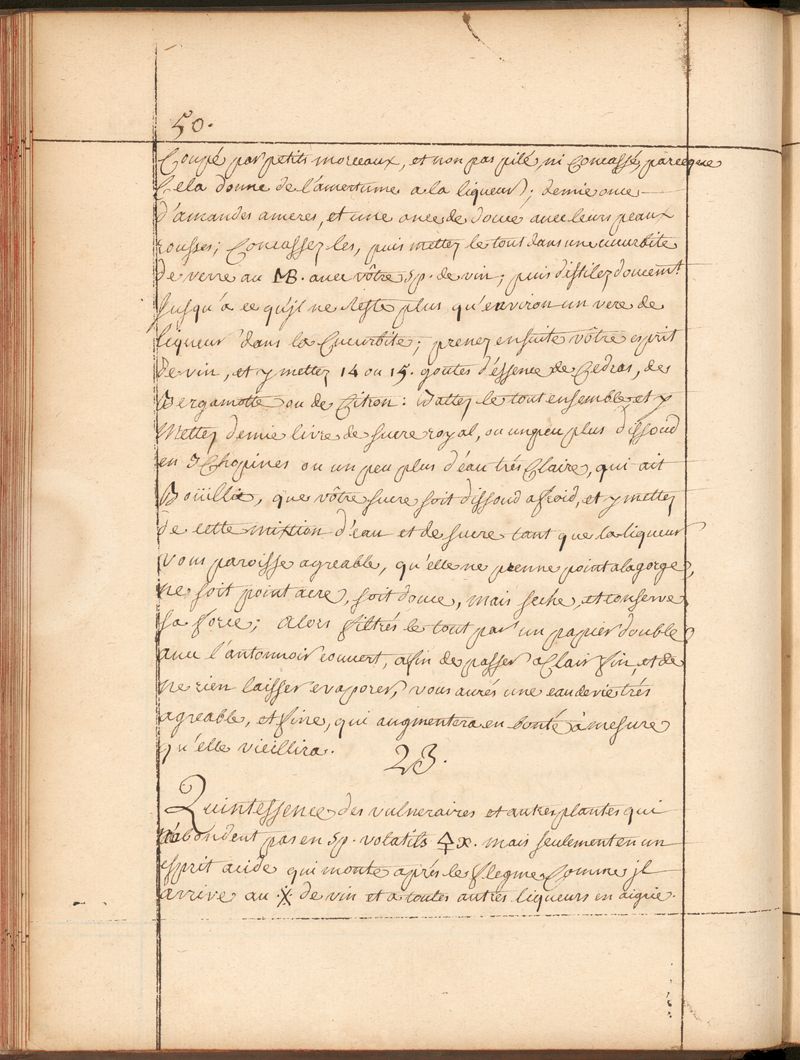 50.
Coupé par petits morceaux, et non pas pilé, ni Concassé, parceque
Cela donne de l'amertume a la liqueur; demie once
d'amandes ameres, et une once de douce avec leurs peaux
rousses; Concassez les, puis mettez le tout dans une cucurbite
de verre au MB. avec vôtre sp. de vin; puis distilez doucemt.
Jusqu'a ce qu'jl ne reste plus qu'environ un vere de
liqueur dans la Cucurbite; prenez ensuite vôtre esprit
de vin, et y mettez 14 ou 15. goutes d'éssence de Cedras, de
Bergamotte ou de Citron: Battez le tout ensemble et y
Mettez demie livre de sucre royal, ou un peu plus dissoud
en 3 Chopines ou un peu plus d'eau trés Claire, qui ait
Boüillie, que vôtre sucre soit dissoud a froid, et y mettez
de cette mixtion d'eau et de sucre tant que la liqueur
vous paroisse agreable, qu'elle ne prenne point a la gorge,
ne soit point acre, soit douce, mais seche, et conserve
sa force; Alors filtrés le tout par un papier double
avec l'antonnoir couvert, afin de passer Clair fin, et de
ne rien laisser evaporer, vous aurés une eau de vie trés
agreable, et fine, qui augmentera en bonté à mesure
qu'elle vieillira.
23.
Quintessence des vulneraires et autres plantes qui
n'abondent pas en sp. volatils 🜍 x. mais seulement en un
esprit acide qui monte aprés le flegme, Comme jl
arrive au .X. de vin et a toutes autres liqueurs en aigrie.